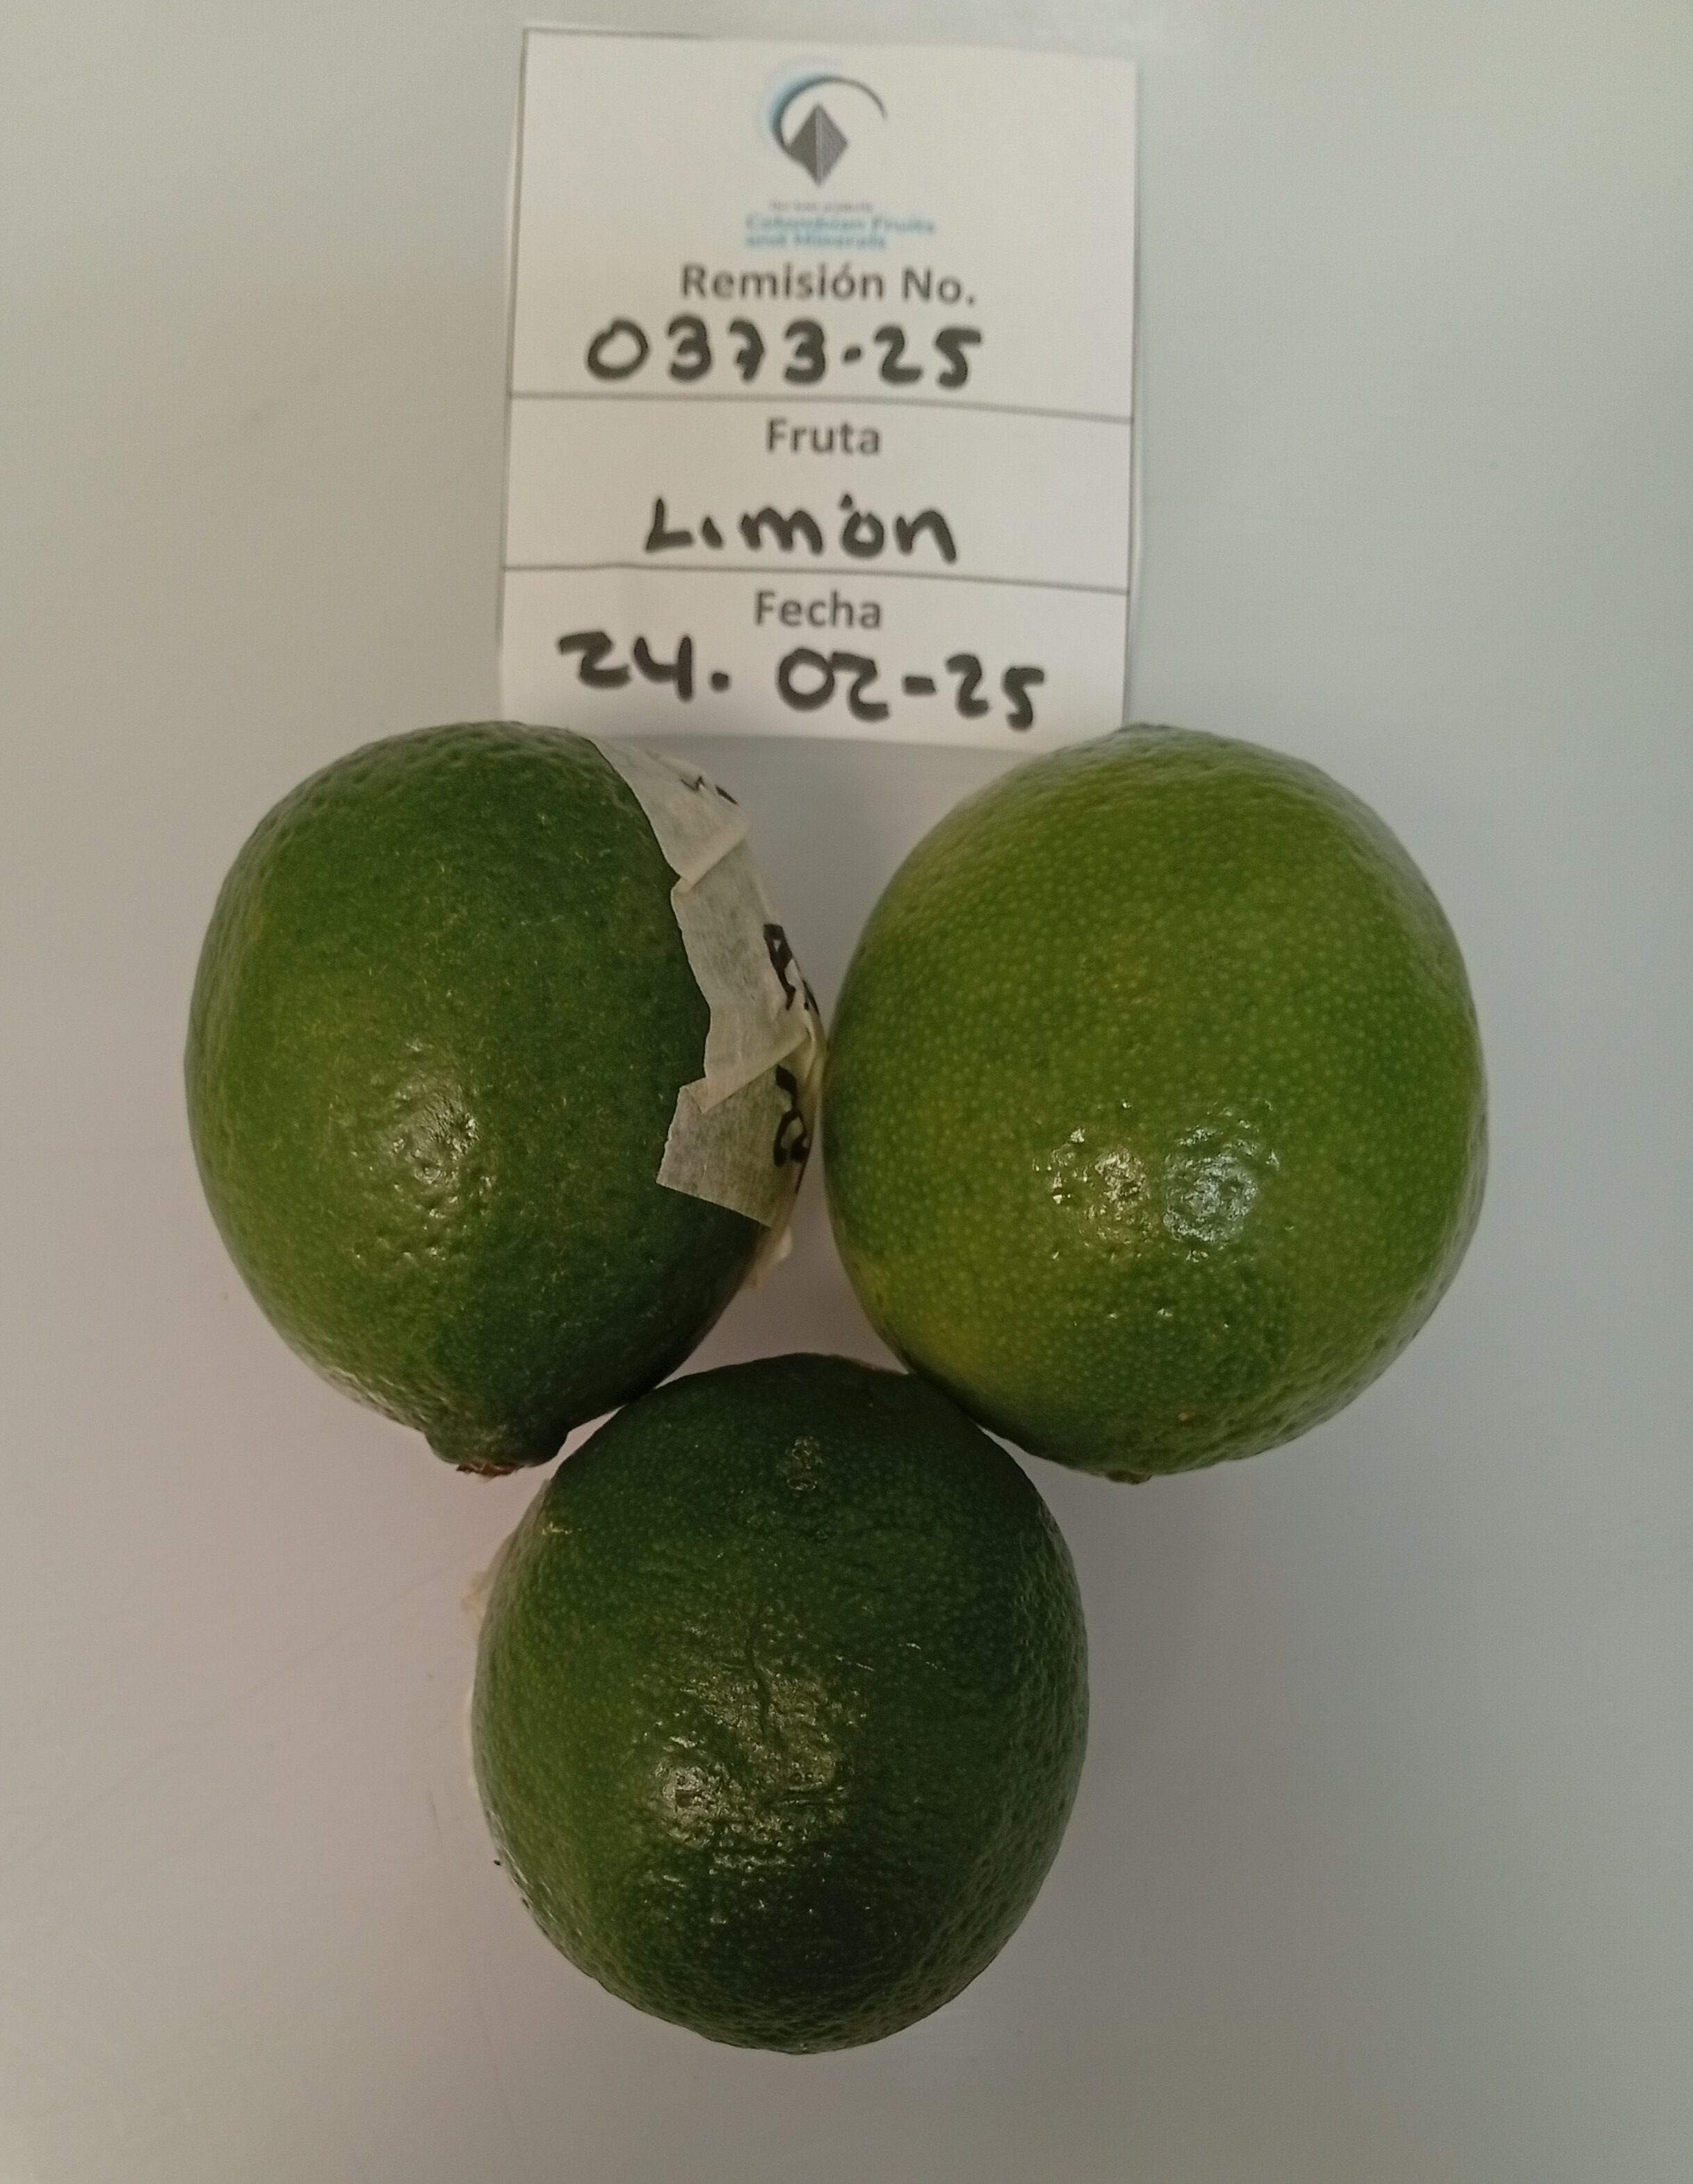 Colombian Fruits
and Minerals
Remisión No.
0373-25
Fruta
Limón
Fecha
24. 02-25